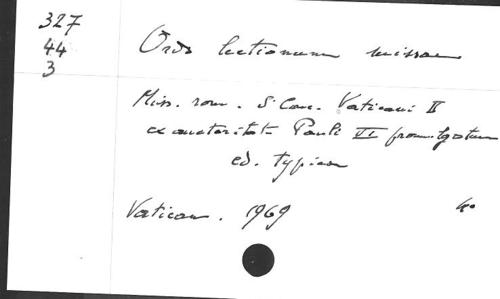 327
44
3
Ordo lectionum missae
Miss. rom. S. Conc. Vaticani II
ex auctoritate Pauli VI promulgatum
ed. typica
Vatican. 1969
4o